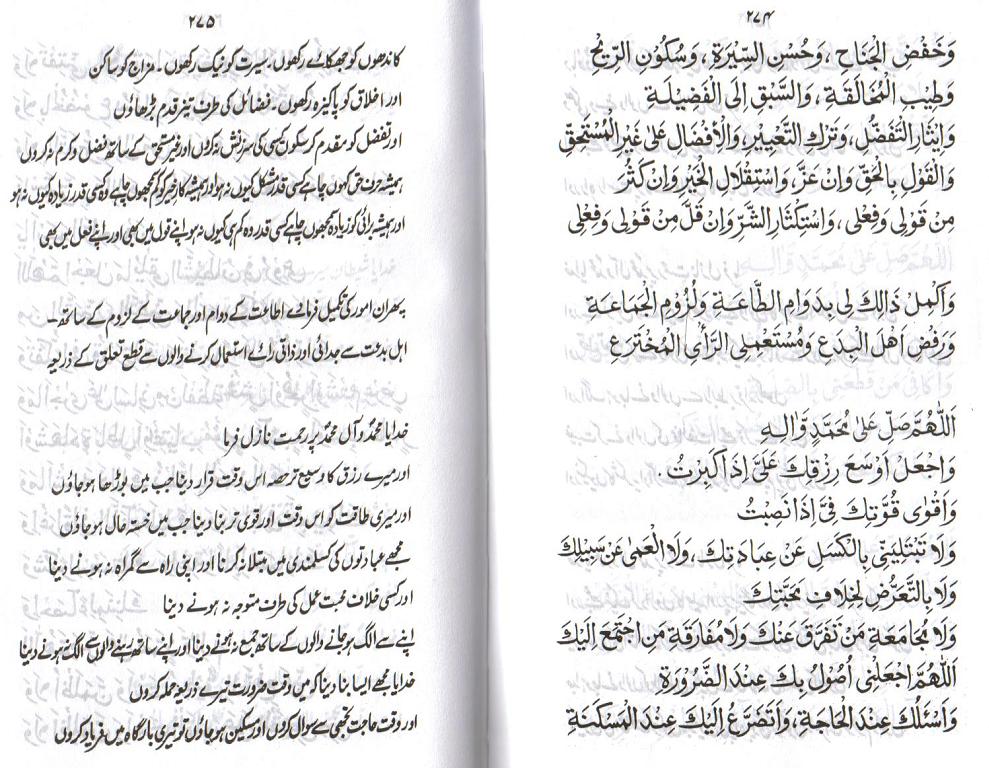 ٢٧٤
وَخَفْضِ الْجَنَاحِ ، وَحُسْنِ السِّيْرَةِ ، وَسُكُوْنِ الرِّيْحِ
وَطِيْبِ الْمُخَالَقَةِ ، وَالسَّبْقِ اِلَى الْفَضِيْلَةِ
وَاِيْثَارِ التَّفَضُّلِ ، وَتَرْكِ التَّعْيِيْرِ، وَالْاِفْضَالِ عَلٰى غَيْرِ الْمُسْتَحِقِّ
وَالْقَوْلِ بِالْحَقِّ وَاِنْ عَزَّ، وَاسْتِقْلَالِ الْخَيْرِ وَاِنْ كَثُرَ
مِنْ قَوْلِىْ وَفِعْلِىْ ، وَاسْتِكْثَارِ الشَّرِّ وَاِنْ قَلَّ مِنْ قَوْلِىْ وَفِعْلِىْ
وَاَكْمِلْ ذَالِكَ لِىْ بِدَوَامِ الطَّاعَةِ وَلُزُوْمِ الْجَمَاعَةِ
وَرَفْضِ اَهْلِ الْبِدَعِ وَمُسْتَعْمِلِى الرَّأْىِ الْمُخْتَرَعِ
اَللّٰهُمَّ صَلِّ عَلٰى مُحَمَّدٍ وَّاٰلِهٖ
وَاجْعَلْ اَوْسَعَ رِزْقِكَ عَلَىَّ اِذَا كَبِرْتُ .
وَاَقْوٰى قُوَّتِكَ فِىَّ اِذَا نَصِبْتُ
وَلَا تَبْتَلِيَنِّىْ بِالْكَسَلِ عَنْ عِبَادَتِكَ ، وَلَا الْعَمٰى عَنْ سَبِيْلِكَ
وَلَا بِالتَّعَرُّضِ لِخِلَافِ مَحَبَّتِكَ
وَلَا مُجَامَعَةِ مَنْ تَفَرَّقَ عَنْكَ وَلَا مُفَارَقَةِ مَنِ اجْتَمَعَ اِلَيْكَ
اَللّٰهُمَّ اجْعَلْنِىْ اَصُوْلُ بِكَ عِنْدَ الضَّرُوْرَةِ
وَاَسْئَلُكَ عِنْدَ الْحَاجَةِ ، وَاَتَضَرَّعُ اِلَيْكَ عِنْدَ الْمَسْكَنَةِ
٢٧٥
کاندھوں کو جھکائے رکھوں۔ سیرت کو نیک رکھوں۔ مزاج کو ساکن
اور اخلاق کو پاکیزہ رکھوں۔ فضائل کی طرف تیز قدم بڑھاؤں
اور تفضل کو مقدم کر سکوں کسی کی سرزنش نہ کروں اور غیر مستحق کے ساتھ فضل و کرم نہ کروں
ہمیشہ حرف حق کہوں چاہے کسی قدر مشکل کیوں نہ ہو اور ہمیشہ کار خیر کو کم سمجھوں چاہے وہ کسی قدر زیادہ کیوں نہ ہو
اور ہمیشہ برائی کو زیادہ سمجھوں چاہے کسی قدر وہ کم ہی کیوں نہ ہو اپنے قول میں بھی اور اپنے فعل میں بھی
پھر ان امور کی تکمیل فرمادے اطاعت کے دوام اور جماعت کے لزوم کے ساتھ۔
اہل بدعت سے جدائی اور ذاتی رائے استعمال کرنے والوں سے قطع تعلق کے ذریعہ
خدایا محمدؐ و آل محمدؐ پر رحمت نازل فرما
اور میرے رزق کا وسیع تر حصہ اس وقت قرار دینا جب میں بوڑھا ہو جاؤں
اور میری طاقت کو اس وقت اور قوی تر بنا دینا جب میں خستہ حال ہو جاؤں
مجھے عبادتوں کی کسلمندی میں مبتلا نہ کرنا اور اپنی راہ سے گمراہ نہ ہونے دینا
اور کسی خلاف محبت عمل کی طرف متوجہ نہ ہونے دینا
اپنے سے الگ ہو جانے والوں کے ساتھ جمع نہ ہونے دینا اور اپنے ساتھ رہنے والوں سے الگ نہ ہونے دینا
خدایا مجھے ایسا بنا دینا کہ میں وقت ضرورت تیرے ذریعہ حملہ کروں
اور وقت حاجت تجھی سے سوال کروں اور مسکین ہو جاؤں تو تیری بارگاہ میں فریاد کروں